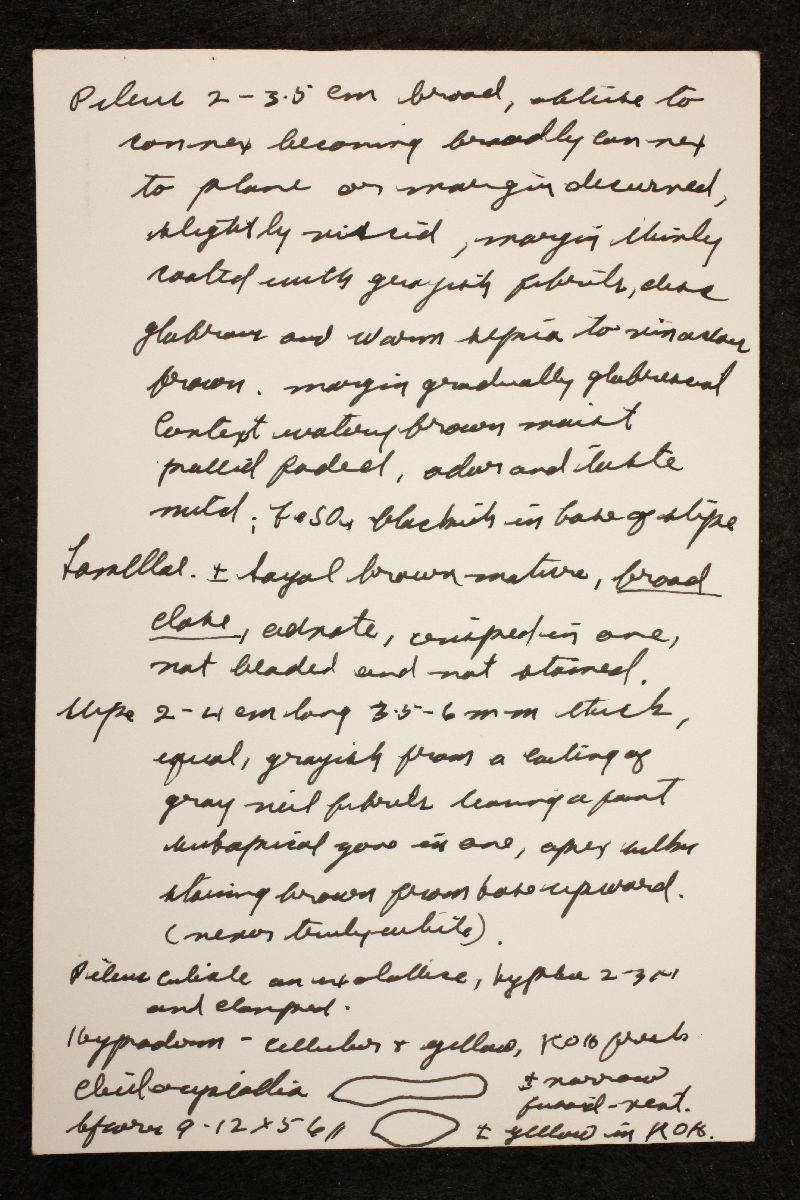 Pileus 2-3.5 cm broad, obtuse to
convex becoming broadly convex
to plane or margin decurved,
slightly viscid, margin thinly
coated with grayish fibrils, disc
glabrous and warm sepia to vinaceous
brown. margin gradually glabrescent
Context watery brown moist
pallid faded, odor and taste
mild; FeSO4 blackish in base of stipe
Lamellae. ± sayal brown mature, broad
close, adnate, crisped in one,
not beaded and not stained.
Stipe 2-4 cm long 3.5-6 mm thick,
equal, grayish from a coating of
gray veil fibrils leaving a faint
subapical zone in one, apex
staining brown from base upward.
(never truly white).
Pileus cuticle an ixolattice, hyphae 2-3 µ
and clamped.
Hypoderm - cellular & yellow, KOH fresh
Cheilocystidia ± narrow
fusoid-vent.
Spores 9-12 x 5-6 µ ± yellow in KOH.